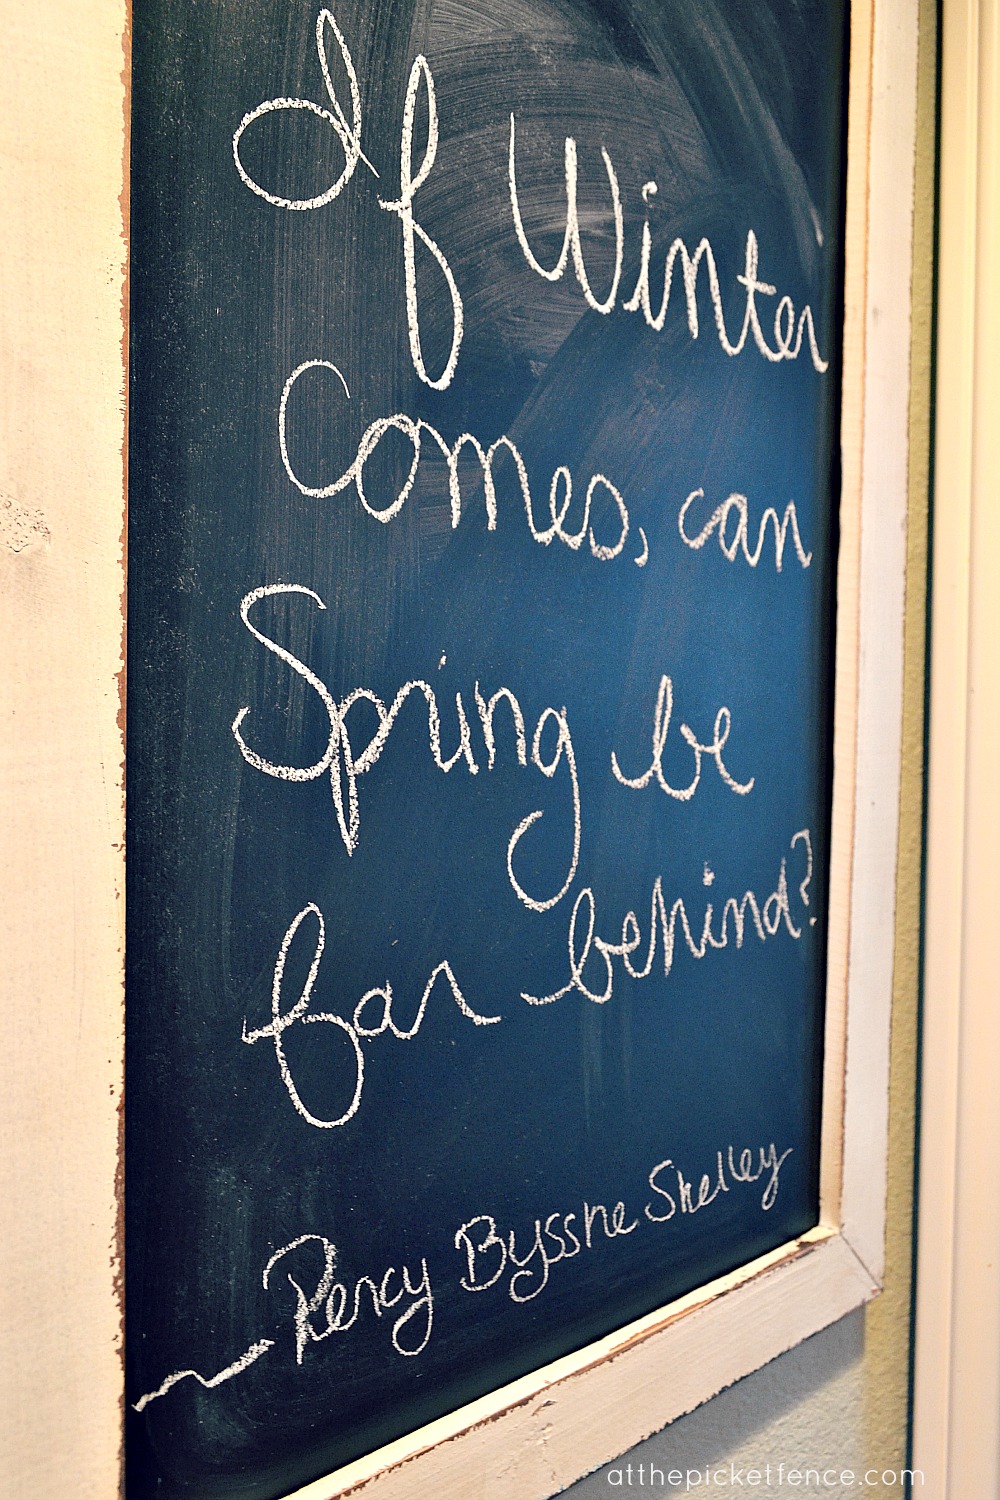 If Winter
Comes, can
Spring be
far behind?
~ Percy Bysshe Shelley
atthepicketfence.com